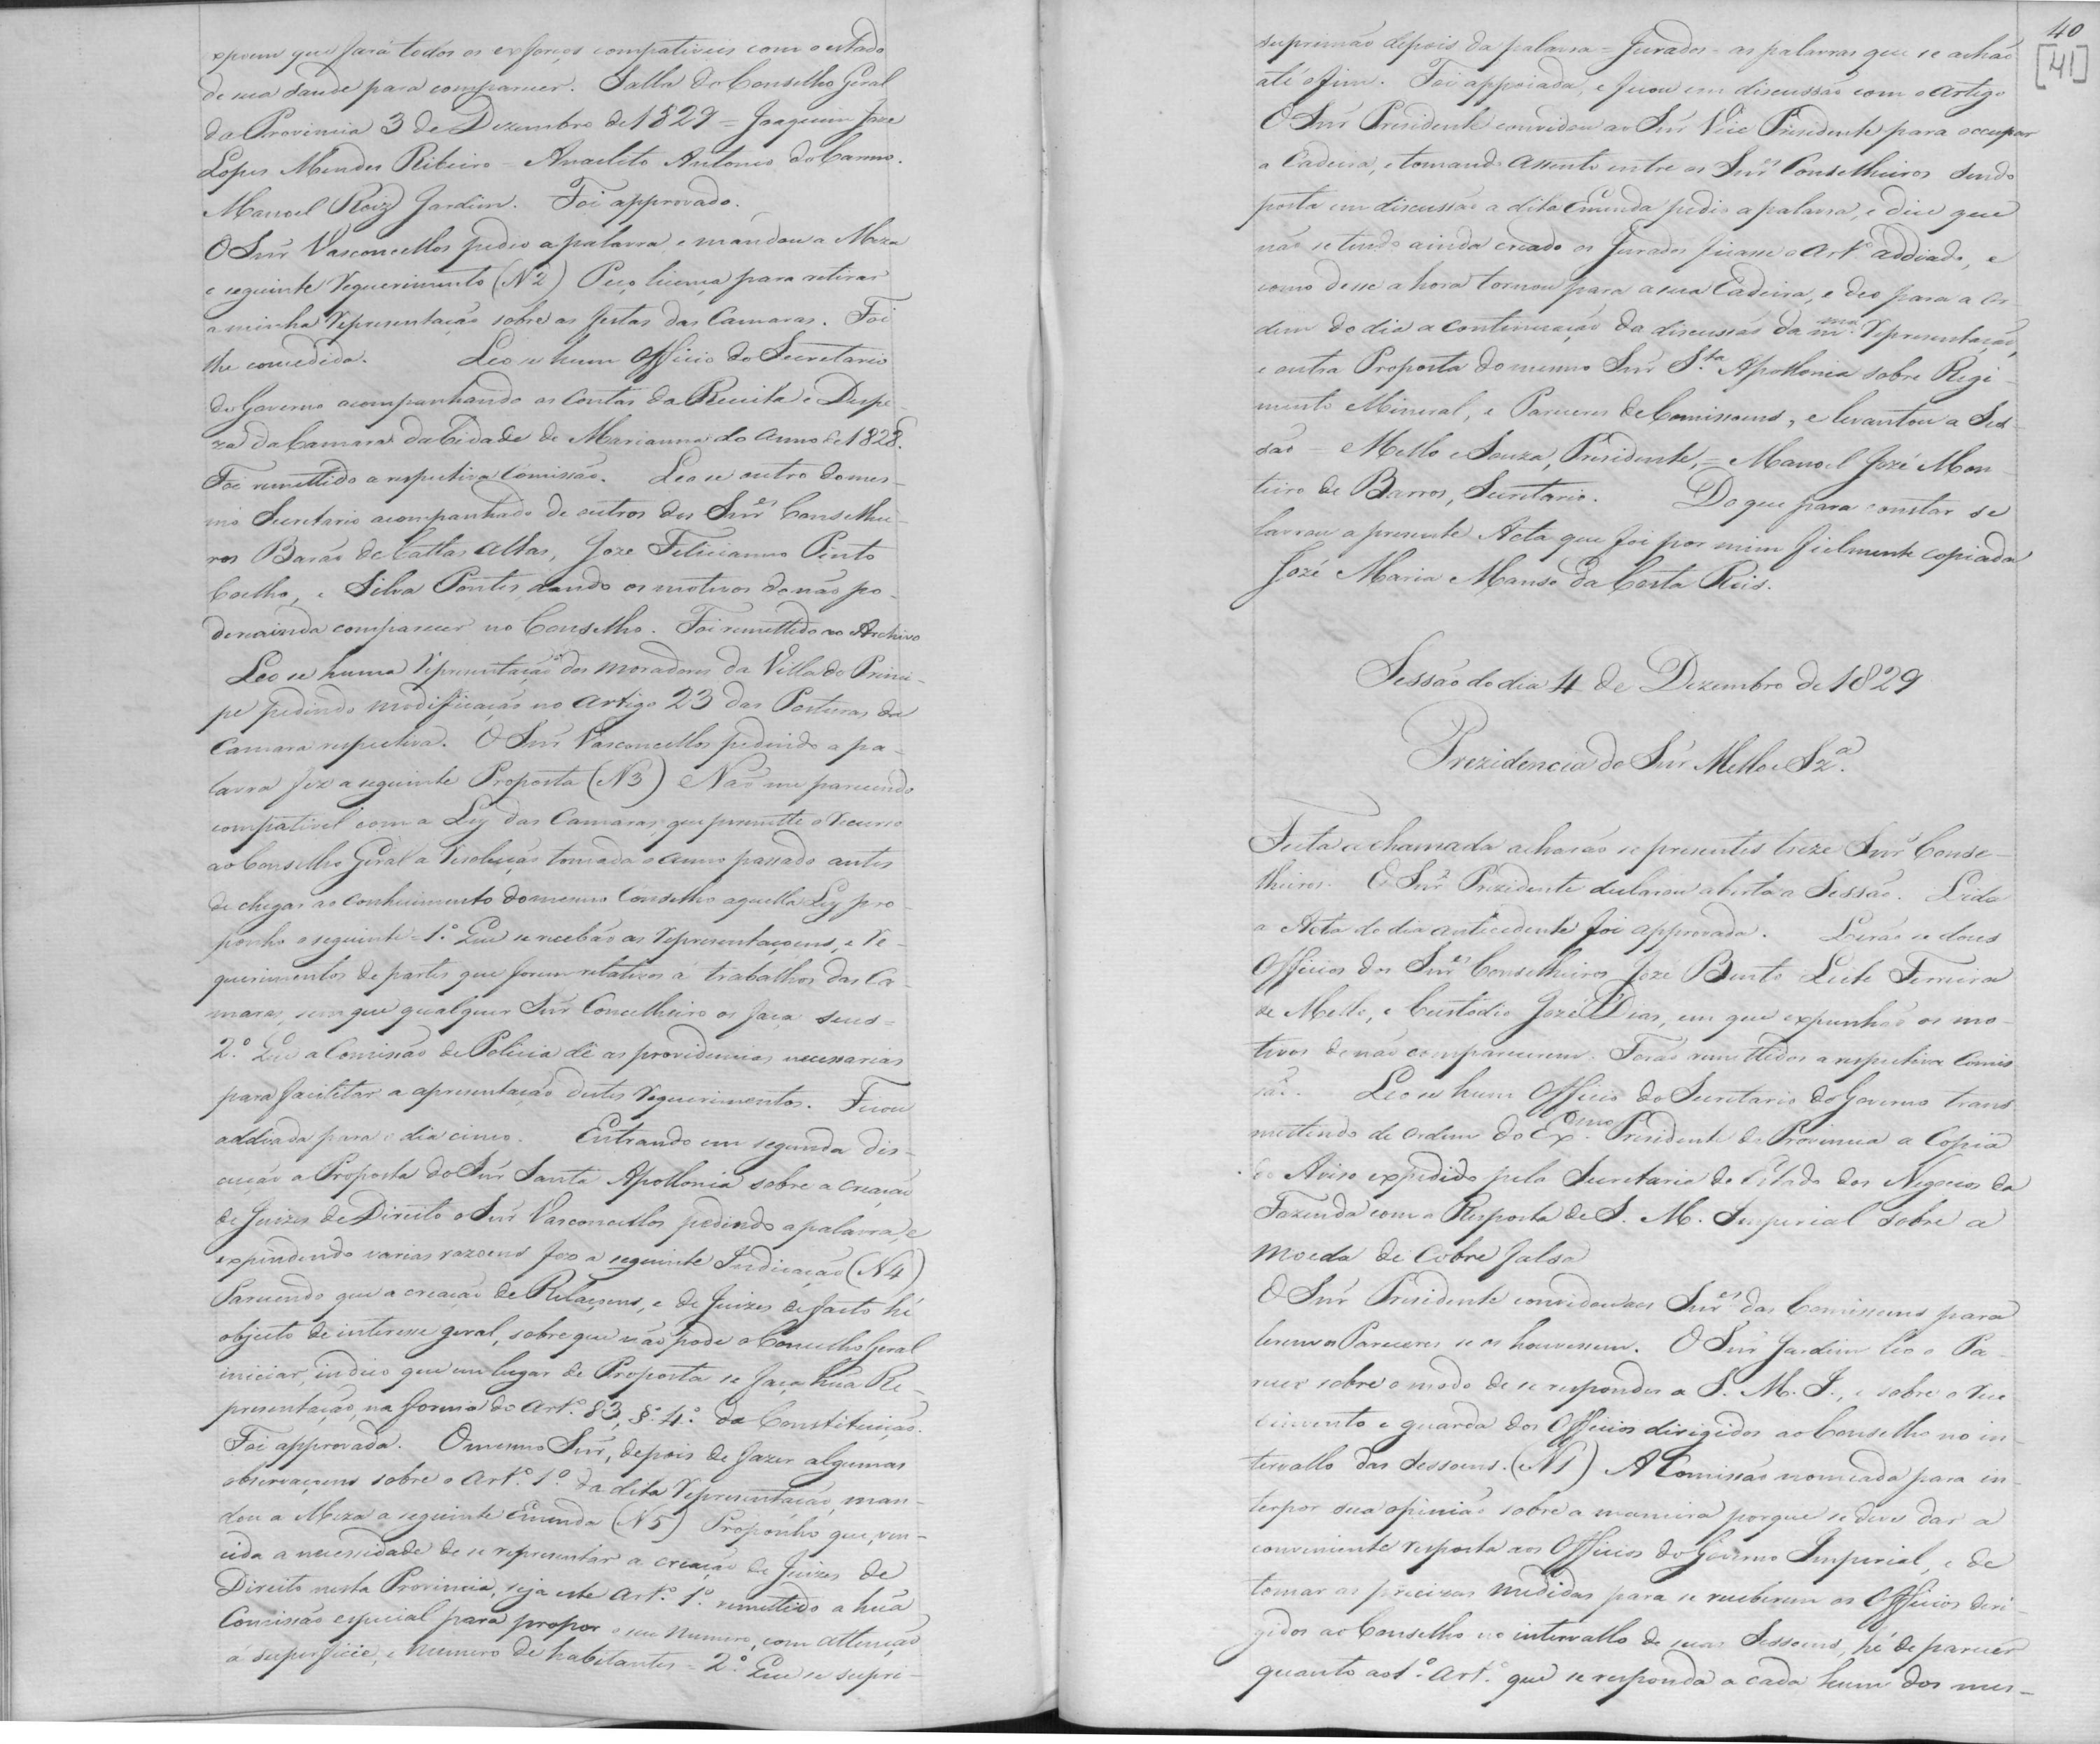 expoem que fará todos os exforços compativeis com o estado
de sua saude para comparecer. Salla do Conselho Geral
da Provincia 3 de Dezembro de 1829 = Joaquim Joze
Lopes Mendes Ribeiro = Anacleto Antonio do Carmo.
Manoel Roiz Jardim. Foi approvado.
O Snr̃ Vasconcellos pedio a palavra e mandou a Meza
o seguinte Requerimento (N 2) Peço licença para retirar
a minha Representação sobre as festas das Camaras. Foi
lhe concedida. Leo se hum Officio do Secretario
do Governo acompanhando as Contas da Receita e Despe-
za da Camara da Cidade de Marianna do Anno de 1828.
Foi remettido a respectiva Comissão. Leo se outro do mes-
mo Secretario acompanhado de outros dos Snr̃es Conselhei-
ros Barão de Cattas Altas, Joze Felicianno Pinto
Coelho, e Silva Pontes, dando os motivos de não po-
derem ainda comparecer no Conselho. Foi remettido ao Archivo
Leo se huma Representação dos moradores da Villa do Princi-
pe pedindo modificação no artigo 23 das Posturas da
Camara respectiva. O Snr̃ Vasconcellos pedindo a pa-
lavra fez a seguinte Proposta (N 3) Não me parecendo
compativel com a Ley das Camaras, que permitte o recurso
ao Conselho Geral a Resolução tomada o anno passado antes
de chegar ao conhecimento do mesmo Conselho aquella Ley pro-
ponho o seguinte = 1.º Que se recebão as Representaçoens, e Re-
querimentos de partes que forem relativos á trabalhos das Ca-
maras, sem que qualquer Snr̃ Concelheiro os faça seus =
2.º Que a Comissão de Policia dê as providencias necessarias
para facilitar a apresentação destes Requerimentos. Ficou
addiada para o dia cinco. Entrando em segunda dis-
cução a Proposta do Snr̃ Santa Apollonia sobre a creação
de Juizes de Direito o Snr̃ Vasconcellos pedindo a palavra, e
expendendo varias razoens fez a seguinte Indicação (N 4)
Parecendo que a creação de Relaçoens, e de Juizes de facto hé
objecto de interesse geral, sobre que não pode o Concelho Geral
iniciar, indico que em lugar de Proposta se faça hũa Re-
presentação, na forma do Art.º 83, §.º 4.º da Constituição.
Foi approvada. O mesmo Snr̃, depois de fazer algumas
observaçoens sobre o Art.º 1.º da dita Representação, man-
dou a Meza a seguinte Emenda (N 5) Proponho que, ven-
cida a necessidade de se representar a creação de Juizes de
Direito nesta Provincia, seja este Art.º 1.º remettido a hũa
Comissão especial para propor o seu numero, com attenção
á superficie, e numero de habitantes = 2.º Que se supri-
40
[41]
suprimão depois da palavra = Jurados = as palavras que se achão
até o fim. Foi appoiada, e ficou em discussão com o Artigo
O Snr̃ Presidente convidou ao Snr̃ Vice Presidente para occupar
a Cadeira, e tomando assento entre os Snr̃es Conselheiros sendo
posta em discussão a dita Emenda pedio a palavra, e dice que
não se tendo ainda creado os Jurados ficasse o Art.º addiado, e
como desse a hora tornou para a sua Cadeira, e deo para a or-
dem do dia a continuação da discussão da m.ma Representação,
e outra Proposta do mesmo Snr̃ S.ta Apollonia sobre Regi-
mento Mineral, e Pareceres de Comissoens, e levantou a Ses-
são = Mello e Souza, Presidente, = Manoel José Mon-
teiro de Barros, Secretario. Do que para constar se
lavrou a presente Acta que foi por mim fielmente copiada
José Maria Manso da Costa Reis.
Sessão do dia 4 de Dezembro de 1829
Prezidencia do Snr̃ Mello e Sz.a
Feita a chamada acharão se presentes treze Snr̃ Conse-
lheiros. O Snr̃ Prezidente declarou aberta a Sessão. Lida
a Acta do dia antecedente foi approvada. Lerão se dous
Officios dos Snr̃es Conselheiros Joze Bento Leite Ferreira
de Mello, e Custodio Jozé Dias, em que expunhão os mo-
tivos de não comparecerem. Forão remettidos a respectiva Comis
são. Leo se hum Officio do Secretario do Governo trans
mettindo de ordem do Ex.mo Presidente da Provincia a Copia
do Aviso expedido pela Secretaria do Estado dos Negocios da
Fazenda com a Resposta de S. M. Imperial sobre a
moeda de Cobre falsa
O Snr̃ Presidente convidou aos Snr̃es das Comissoens para
lerem os Pareceres se os houvessem. O Snr̃ Jardim leo o Pa-
recer sobre o modo de se responder a S. M. I., e sobre o rece
bimento e guarda dos Officios dirigidos ao Conselho no in-
tervallo das Sessoens. (N 1) A Comissão nomeada para in-
terpor sua opinião sobre a maneira porque se deve dar a
conveniente resposta aos Officios do Governo Imperial, e de
tomar as precizas medidas para se receberem os Officios diri-
gidos ao Conselho no intervallo de suas Sessoens, hé de parecer
quanto ao 1.º Art.º que se responda a cada hum dos mes-